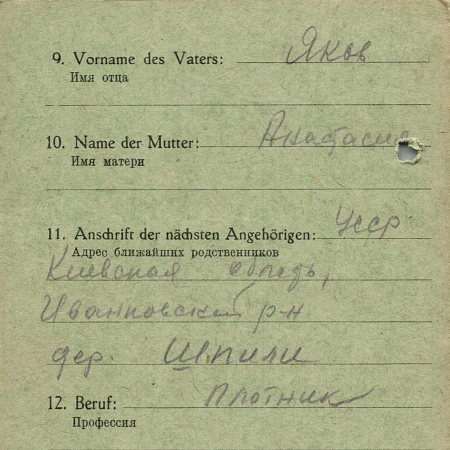 9. Vorname des Vaters: Яков
Имя отца
10. Name der Mutter: Анастасия
Имя матери
11. Anschrift der nächsten Angehörigen: УССР
Адрес ближайших родственников
Киевская область,
Иванковский р-н
дер. Шпили
12. Beruf: Плотник
Профессия